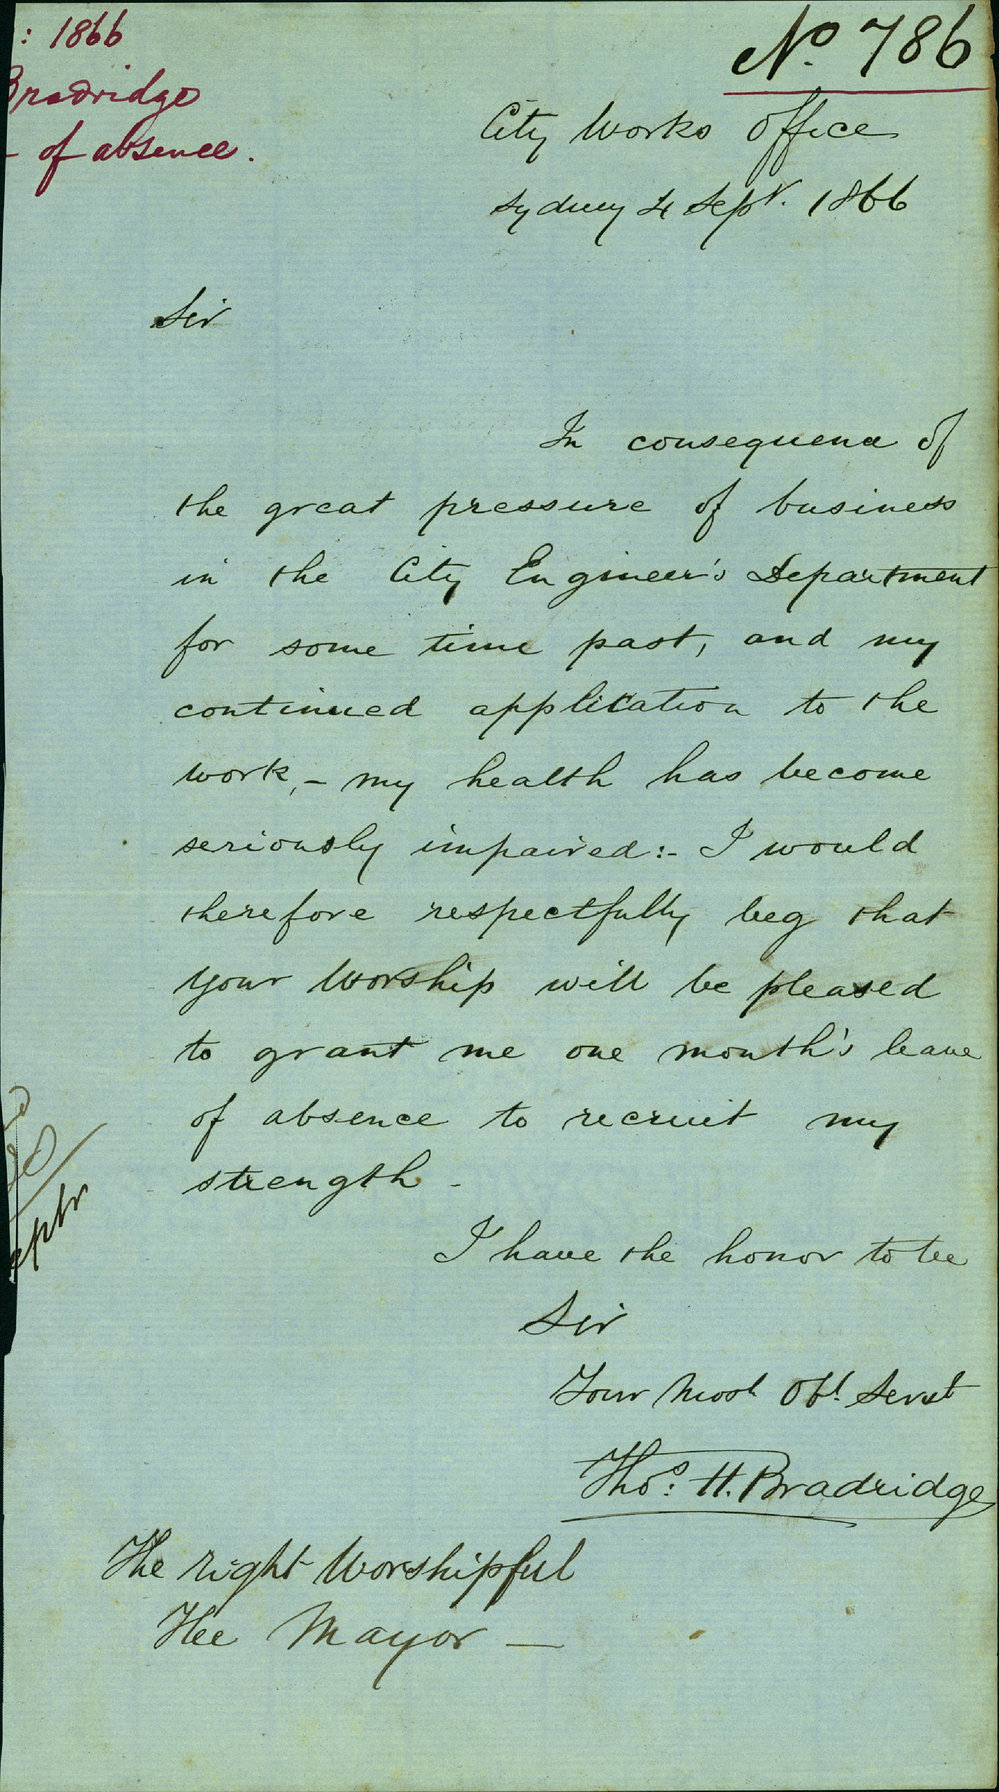 : 1866
Bradridge
- of absence.
No. 786
City Works Office
Sydney 4 Sepr. 1866
Sir
In consequence of
the great pressure of business
in the City Engineer's Department
for some time past, and my
continued application to the
work, - my health has become
seriously impaired:- I would
therefore respectfully beg that
your Worship will be pleased
to grant me one month's leave
of absence to recruit my
strength -
I have the honor to be
Sir
Your Most Obt. Servt
Thos. H. Bradridge
The right Worshipful
The Mayor —
eptr